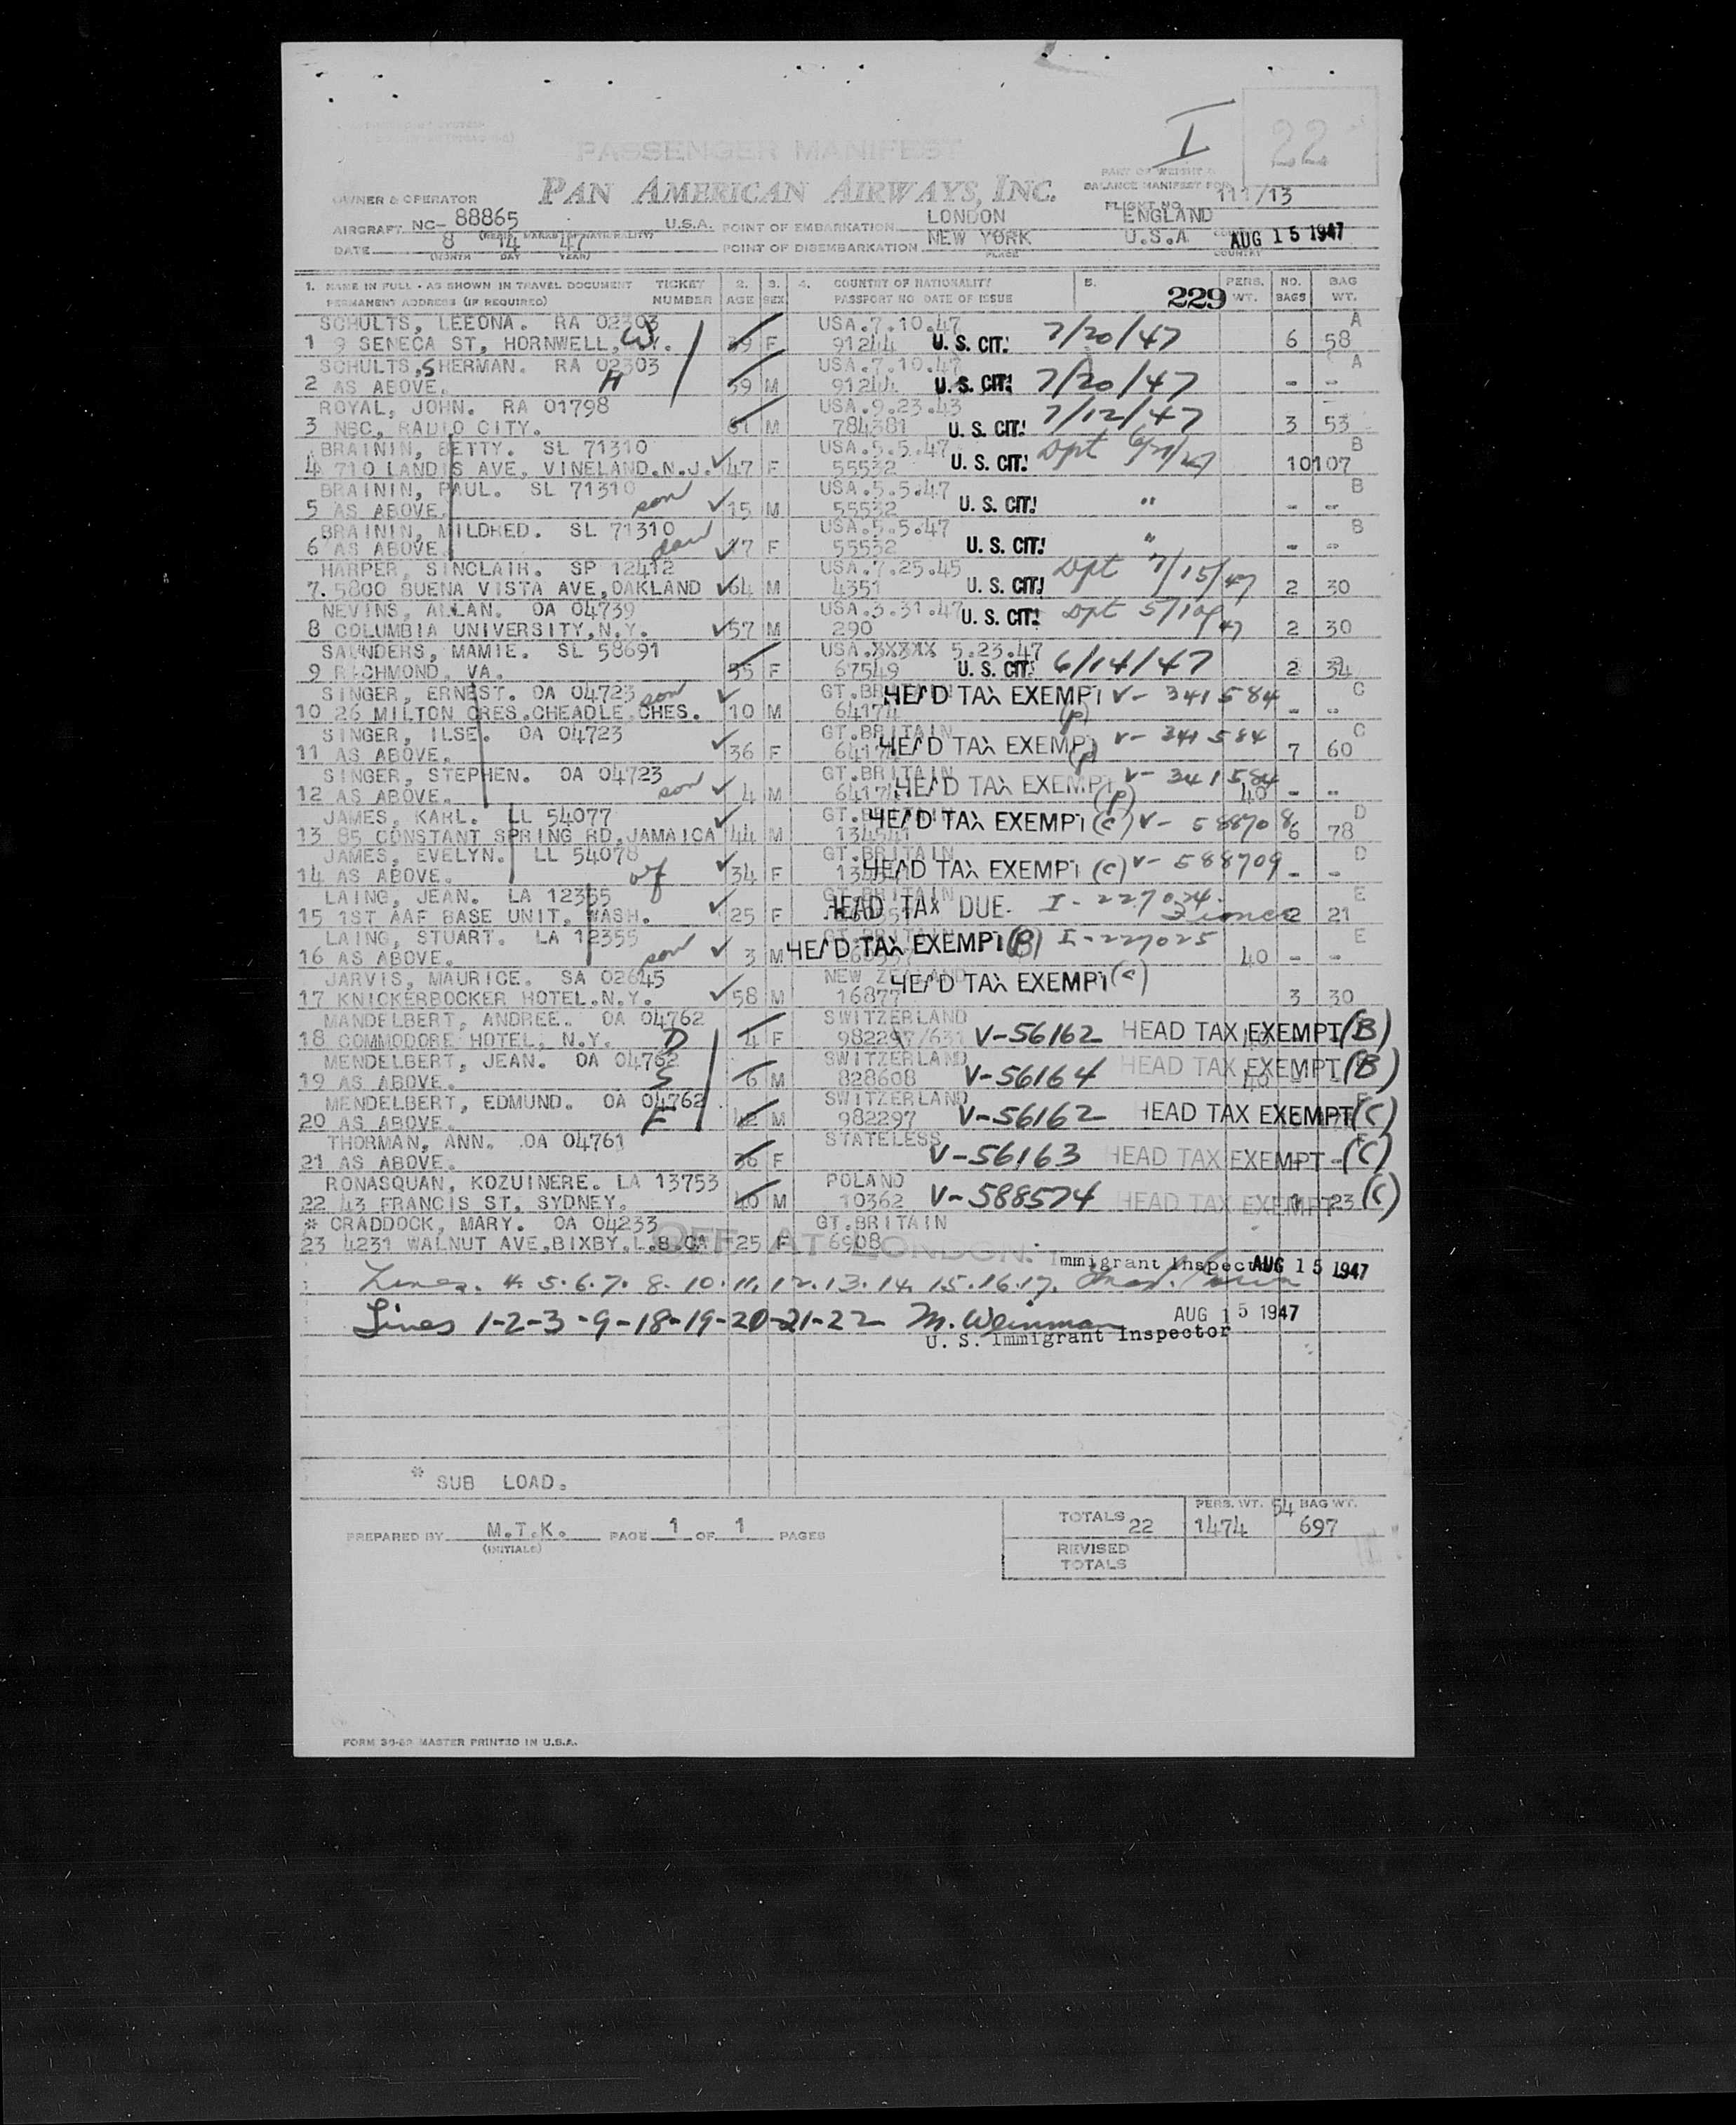 I
22
PASSENGER MANIFEST
PAN AMERICAN AIRWAYS, INC.
PART OF WEIGHT &
BALANCE MANIFEST FOR
FLIGHT NO. 111/13
OWNER & OPERATOR
AIRCRAFT NC- 88865 U.S.A. POINT OF EMBARKATION LONDON ENGLAND
DATE 8 14 47 POINT OF DISEMBARKATION NEW YORK U.S.A AUG 15 1947
(MONTH DAY YEAR) PLACE COUNTRY
1. NAME IN FULL - AS SHOWN IN TRAVEL DOCUMENT TICKET 2. 3. 4. COUNTRY OF NATIONALITY 5. PERS. NO. BAG
PERMANENT ADDRESS (IF REQUIRED) NUMBER AGE SEX PASSPORT NO DATE OF ISSUE 229 WT. BAGS WT.
SCHULTS, LEEONA. RA 02303 USA.7.10.47 A
1 9 SENECA ST, HORNWELL, W. 39 F 91244 U. S. CIT. 7/20/47 6 58
SCHULTS, SHERMAN. RA 02303 USA.7.10.47 A
2 AS ABOVE. H 39 M 91244 U. S. CIT. 7/20/47 - --
ROYAL, JOHN. RA 01798 USA.9.23.43
3 NBC, RADIO CITY. 61 M 784381 U. S. CIT. 7/12/47 3 53
BRAININ, BETTY. SL 71310 USA.5.5.47 Dpt B
4 710 LANDIS AVE, VINELAND.N.J. 47 F 55532 U. S. CIT. 10 107
BRAININ, PAUL. SL 71310 USA.5.5.47 B
5 AS ABOVE. son 15 M 55532 U. S. CIT. " - --
BRAININ, MILDRED. SL 71310 USA.5.5.47 B
6 AS ABOVE. dau 17 F 55532 U. S. CIT. " - --
HARPER, SINCLAIR. SP 12412 USA.7.25.45 Dpt 7/15/47
7. 5800 BUENA VISTA AVE, OAKLAND 64 M 4351 U. S. CIT. 2 30
NEVINS, ALLAN. OA 04739 USA.3.31.47 U. S. CIT. Dpt
8 COLUMBIA UNIVERSITY, N.Y. 57 M 290 2 30
SAUNDERS, MAMIE. SL 58691 USA.XXXXX 5.23.47
9 RICHMOND. VA. 55 F 67549 U. S. CIT. 6/14/47 2 34
SINGER, ERNEST. OA 04723 son GT.BRITAIN HEAD TAX EXEMPT V- 341584 C
10 26 MILTON CRES.CHEADLE.CHES. 10 M 64174 (P) - --
SINGER, ILSE. OA 04723 GT.BRITAIN V- 341584 C
11 AS ABOVE. 36 F 64174 HEAD TAX EXEMPT (P) 7 60
SINGER, STEPHEN. OA 04723 son GT.BRITAIN V- 341584
12 AS ABOVE. 4 M 64174 HEAD TAX EXEMPT (P) 40 - --
JAMES, KARL. LL 54077 GT.BRITAIN HEAD TAX EXEMPT (C) V- 588708 D
13 85 CONSTANT SPRING RD. JAMAICA 44 M 134541 6 78
JAMES, EVELYN. LL 54078 GT.BRITAIN D
14 AS ABOVE. wf 34 F HEAD TAX EXEMPT (C) V- 588709 - --
LAING, JEAN. LA 12355 GT.BRITAIN E
15 1ST AAF BASE UNIT, WASH. 25 F HEAD TAX DUE. I- 227024. 2 21
LAING, STUART. LA 12355 E
16 AS ABOVE. son 3 M HEAD TAX EXEMPT (B) I- 227025 40 - --
JARVIS, MAURICE. SA 02645 NEW ZEALAND HEAD TAX EXEMPT (C)
17 KNICKERBOCKER HOTEL.N.Y. 58 M 16877 3 30
MANDELBERT, ANDREE. OA 04762 SWITZERLAND
18 COMMODORE HOTEL, N.Y. D 4 F V-56162 HEAD TAX EXEMPT (B)
MENDELBERT, JEAN. OA 04762 SWITZERLAND
19 AS ABOVE. S 6 M 828608 V-56164 HEAD TAX EXEMPT (B) 40
MENDELBERT, EDMUND. OA 04762 SWITZERLAND
20 AS ABOVE. F 42 M 982297 V-56162 HEAD TAX EXEMPT (C)
THORMAN, ANN. OA 04761 STATELESS
21 AS ABOVE. 36 F V-56163 HEAD TAX EXEMPT (C)
RONASQUAN, KOZUINERE. LA 13753 POLAND
22 43 FRANCIS ST. SYDNEY. 40 M 10362 V-588574 HEAD TAX EXEMPT 23 (C)
* CRADDOCK, MARY. OA 04233 GT.BRITAIN
23 4231 WALNUT AVE.BIXBY.L.B.CA 25 F 6908 OFF AT LONDON.
Immigrant Inspector AUG 15 1947
Lines. 4. 5. 6. 7. 8. 10. 11. 12. 13. 14. 15. 16. 17.
Lines 1-2-3-9-18-19-20-21-22 M. Weinman AUG 15 1947
U. S. Immigrant Inspector
* SUB LOAD.
PREPARED BY M.T.K. PAGE 1 OF 1 PAGES
(INITIALS)
TOTALS 22 PERS. WT. 1474 54 BAG WT. 697
REVISED
TOTALS
FORM 30-60 MASTER PRINTED IN U.S.A.